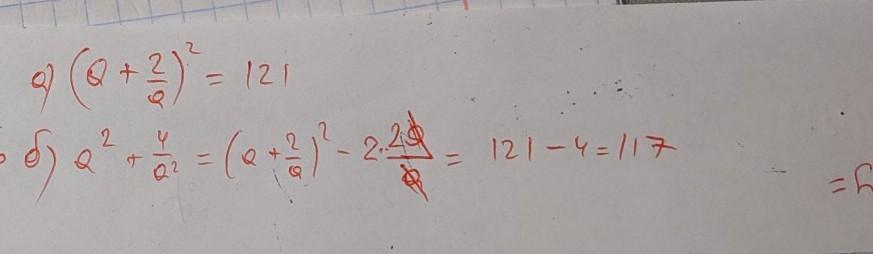 а) (a + 2/a)² = 121
б) a² + 4/a² = (a + 2/a)² - 2·2a/a = 121 - 4 = 117